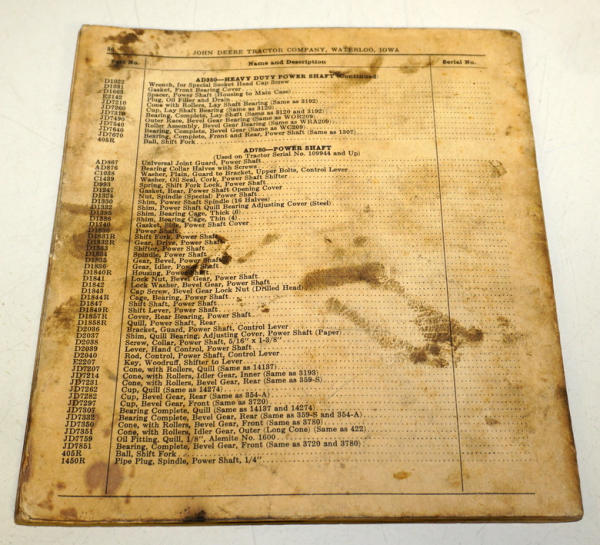 JOHN DEERE TRACTOR COMPANY, WATERLOO, IOWA
Part No. Name and Description Serial No.
AD980—HEAVY DUTY POWER SHAFT (Continued)
Wrench, for Special Socket Head Cap Screw
Gasket, Front Bearing Cover
Spacer, Power Shaft (Housing to Main Case)
Plug, Oil Filler and Drain
JD7210 Cone with Rollers, Lay Shaft Bearing (Same as 3192)
Cup, Lay Shaft Bearing (Same as 3120)
Bearing, Complete, Lay Shaft (Same as 3120 and 3192)
Outer Race, Bevel Gear Bearing (Same as WOR209)
Roller Assembly, Bevel Gear Bearing (Same as WRA209)
JD7640 Bearing, Complete, Bevel Gear (Same as WC209)
JD7670 Bearing, Complete, Front and Rear, Power Shaft (Same as 1307)
405R Ball, Shift Fork
AD780—POWER SHAFT
(Used on Tractor Serial No. 109944 and Up)
AD867 Universal Joint Guard, Power Shaft
AD876 Bearing Collar Halves with Screws
C1038 Washer, Plain, Guard to Bracket, Upper Bolts, Control Lever
C1439 Washer, Oil Seal, Cork, Power Shaft Shifter
D993 Spring, Shift Fork Lock, Power Shaft
D1247 Gasket, Rear, Power Shaft Opening Cover
Nut, Spindle (Special) Power Shaft
Shim, Power Shaft Spindle (16 Halves)
Shim, Power Shaft Quill Bearing Adjusting Cover (Steel)
Shim, Bearing Cage, Thick
Shim, Bearing Cage, Thin (4)
Gasket, Side, Power Shaft Cover
Power Shaft
Shift Fork, Power Shaft
Gear, Drive, Power Shaft
Shifter, Power Shaft
Spindle, Power Shaft
Gear, Bevel, Power Shaft
Gear, Idler, Power Shaft
D1840R Housing, Power Shaft
D1841 Lock Nut, Bevel Gear, Power Shaft
D1842 Lock Washer, Bevel Gear, Power Shaft
D1843 Cap Screw, Bevel Gear Lock Nut (Drilled Head)
D1844R Cage, Bearing, Power Shaft
D1847 Shift Shaft, Power Shaft
D1849R Shift Lever, Power Shaft
D1857R Cover, Rear Bearing, Power Shaft
D1858R Quill, Power Shaft, Rear
D2036 Bracket, Guard, Power Shaft, Control Lever
D2037 Shim, Quill Bearing, Adjusting Cover, Power Shaft (Paper)
D2038 Screw, Collar, Power Shaft, 5/16" x 1-3/8"
D2039 Lever, Hand Control, Power Shaft
D2040 Rod, Control, Power Shaft, Control Lever
E2207 Key, Woodruff, Shifter to Lever
JD7207 Cone, with Rollers, Quill (Same as 14137)
JD7214 Cone, with Rollers, Idler Gear, Inner (Same as 3193)
JD7231 Cone, with Rollers, Bevel Gear, Rear (Same as 359-S)
JD7262 Cup, Quill (Same as 14274)
JD7282 Cup, Bevel Gear, Rear (Same as 354-A)
JD7297 Cup, Bevel Gear, Front (Same as 3720)
JD7307 Bearing Complete, Quill (Same as 14137 and 14274)
JD7332 Bearing Complete, Bevel Gear, Rear (Same as 359-S and 354-A)
JD7350 Cone, with Rollers, Bevel Gear, Front (Same as 3780)
JD7351 Cone, with Rollers, Idler Gear, Outer (Long Cone) (Same as 422)
JD7759 Oil Fitting, Quill, 1/8", Alemite No. 1600
JD7851 Bearing, Complete, Bevel Gear, Front (Same as 3720 and 3780)
405R Ball, Shift Fork
1450R Pipe Plug, Spindle, Power Shaft, 1/4"